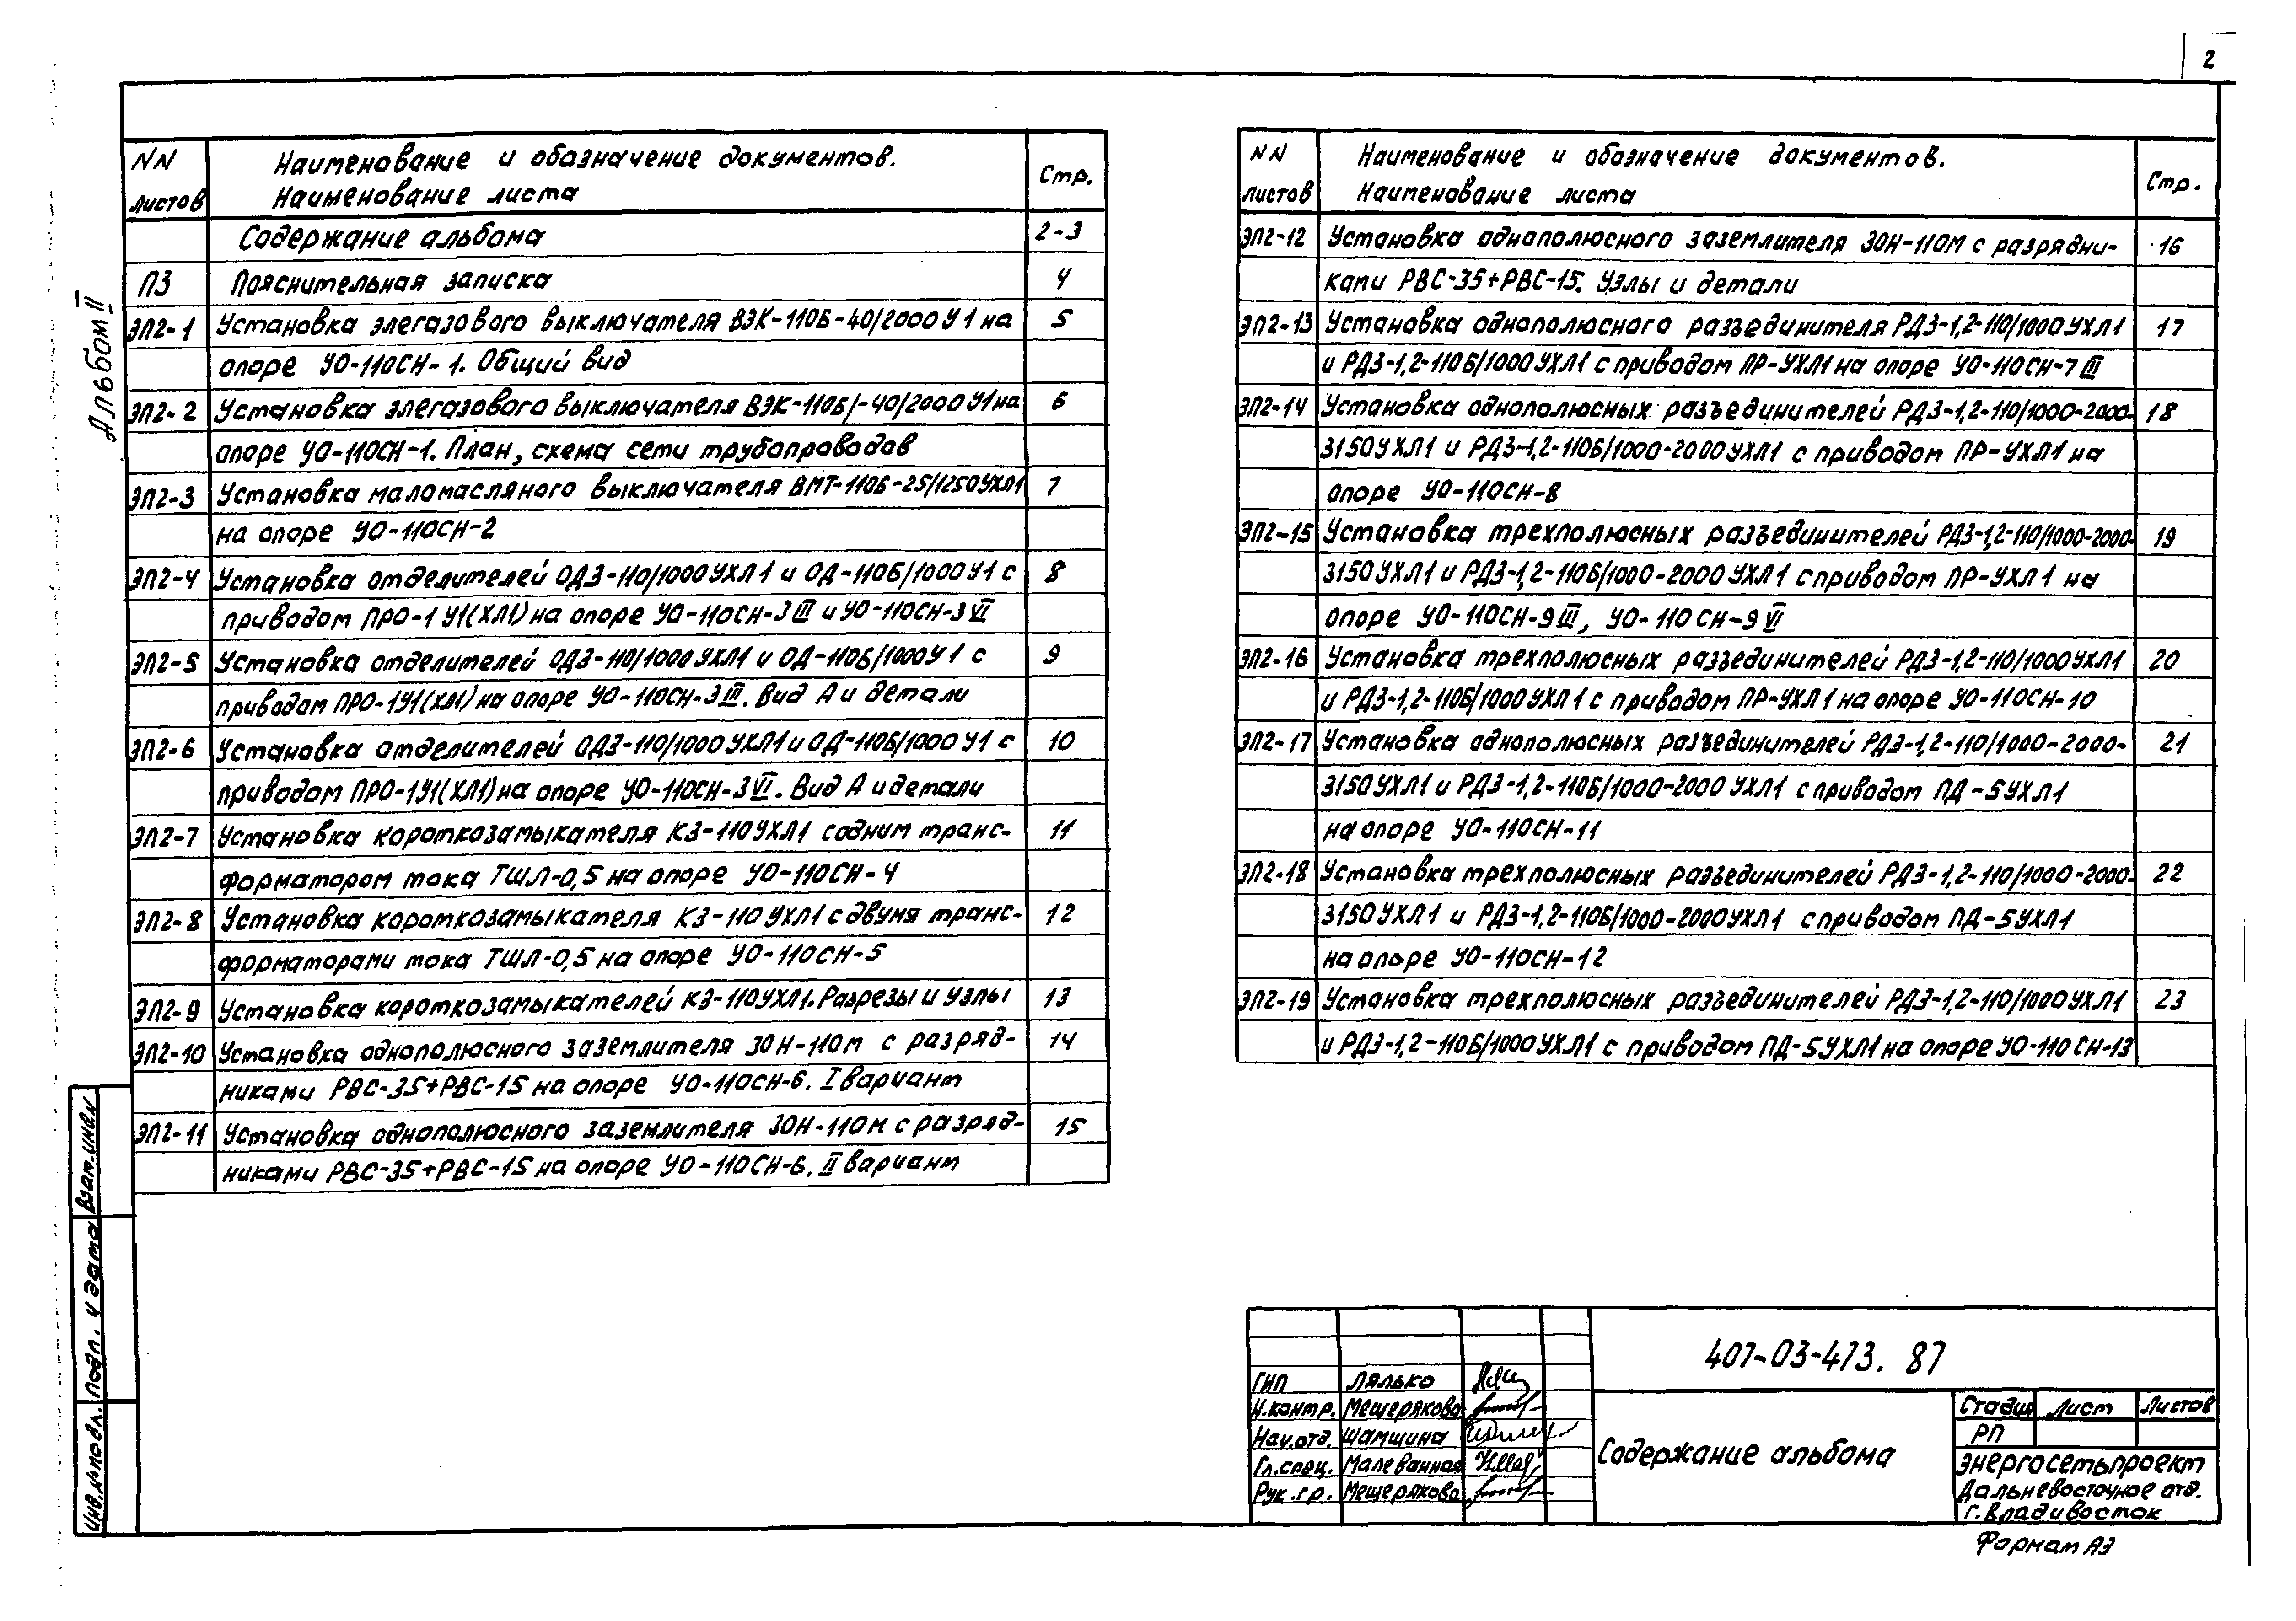 2
Альбом II
NN листов
Наименование и обозначение документов.
Наименование листа
Стр.
Содержание альбома 2-3
ПЗ Пояснительная записка 4
ЭП2-1 Установка элегазового выключателя ВЭК-110Б-40/2000У1 на 5
опоре УО-110СН-1. Общий вид
ЭП2-2 Установка элегазового выключателя ВЭК-110Б/-40/2000У1 на 6
опоре УО-110СН-1. План, схема сети трубопроводов
ЭП2-3 Установка маломасляного выключателя ВМТ-110Б-25/1250УХЛ1 7
на опоре УО-110СН-2
ЭП2-4 Установка отделителей ОДЗ-110/1000УХЛ1 и ОД-110Б/1000У1 с 8
приводом ПРО-1У1(ХЛ1) на опоре УО-110СН-3III и УО-110СН-3VI
ЭП2-5 Установка отделителей ОДЗ-110/1000УХЛ1 и ОД-110Б/1000У1 с 9
приводом ПРО-1У1(ХЛ1) на опоре УО-110СН-3III. Вид А и детали
ЭП2-6 Установка отделителей ОДЗ-110/1000УХЛ1 и ОД-110Б/1000У1 с 10
приводом ПРО-1У1(ХЛ1) на опоре УО-110СН-3VI. Вид А и детали
ЭП2-7 Установка короткозамыкателя КЗ-110УХЛ1 с одним транс- 11
форматором тока ТШЛ-0,5 на опоре УО-110СН-4
ЭП2-8 Установка короткозамыкателя КЗ-110УХЛ1 с двумя транс- 12
форматорами тока ТШЛ-0,5 на опоре УО-110СН-5
ЭП2-9 Установка короткозамыкателей КЗ-110УХЛ1. Разрезы и узлы 13
ЭП2-10 Установка однополюсного заземлителя ЗОН-110м с разряд- 14
никами РВС-35+РВС-15 на опоре УО-110СН-6. I вариант
ЭП2-11 Установка однополюсного заземлителя ЗОН-110м с разряд- 15
никами РВС-35+РВС-15 на опоре УО-110СН-6. II вариант
NN листов
Наименование и обозначение документов.
Наименование листа
Стр.
ЭП2-12 Установка однополюсного заземлителя ЗОН-110М с разрядни- 16
ками РВС-35+РВС-15. Узлы и детали
ЭП2-13 Установка однополюсного разъединителя РДЗ-1,2-110/1000УХЛ1 17
и РДЗ-1,2-110Б/1000УХЛ1 с приводом ПР-УХЛ1 на опоре УО-110СН-7III
ЭП2-14 Установка однополюсных разъединителей РДЗ-1,2-110/1000-2000- 18
3150УХЛ1 и РДЗ-1,2-110Б/1000-2000УХЛ1 с приводом ПР-УХЛ1 на
опоре УО-110СН-8
ЭП2-15 Установка трехполюсных разъединителей РДЗ-1,2-110/1000-2000- 19
3150УХЛ1 и РДЗ-1,2-110Б/1000-2000УХЛ1 с приводом ПР-УХЛ1 на
опоре УО-110СН-9III, УО-110СН-9VI
ЭП2-16 Установка трехполюсных разъединителей РДЗ-1,2-110/1000УХЛ1 20
и РДЗ-1,2-110Б/1000УХЛ1 с приводом ПР-УХЛ1 на опоре УО-110СН-10
ЭП2-17 Установка однополюсных разъединителей РДЗ-1,2-110/1000-2000- 21
3150УХЛ1 и РДЗ-1,2-110Б/1000-2000УХЛ1 с приводом ПД-5УХЛ1
на опоре УО-110СН-11
ЭП2-18 Установка трехполюсных разъединителей РДЗ-1,2-110/1000-2000- 22
3150УХЛ1 и РДЗ-1,2-110Б/1000-2000УХЛ1 с приводом ПД-5УХЛ1
на опоре УО-110СН-12
ЭП2-19 Установка трехполюсных разъединителей РДЗ-1,2-110/1000УХЛ1 23
и РДЗ-1,2-110Б/1000УХЛ1 с приводом ПД-5УХЛ1 на опоре УО-110СН-13
Взам.инв.№
Подп. и дата
Инв.№подл.
407-03-473.87
ГИП Лялько
Н.контр. Мещерякова
Нач.отд. Шамшина
Гл.спец. Малеванная
Рук.гр. Мещерякова
Содержание альбома
Стадия Лист Листов
РП
Энергосетьпроект
Дальневосточное отд.
г.Владивосток
Формат А3